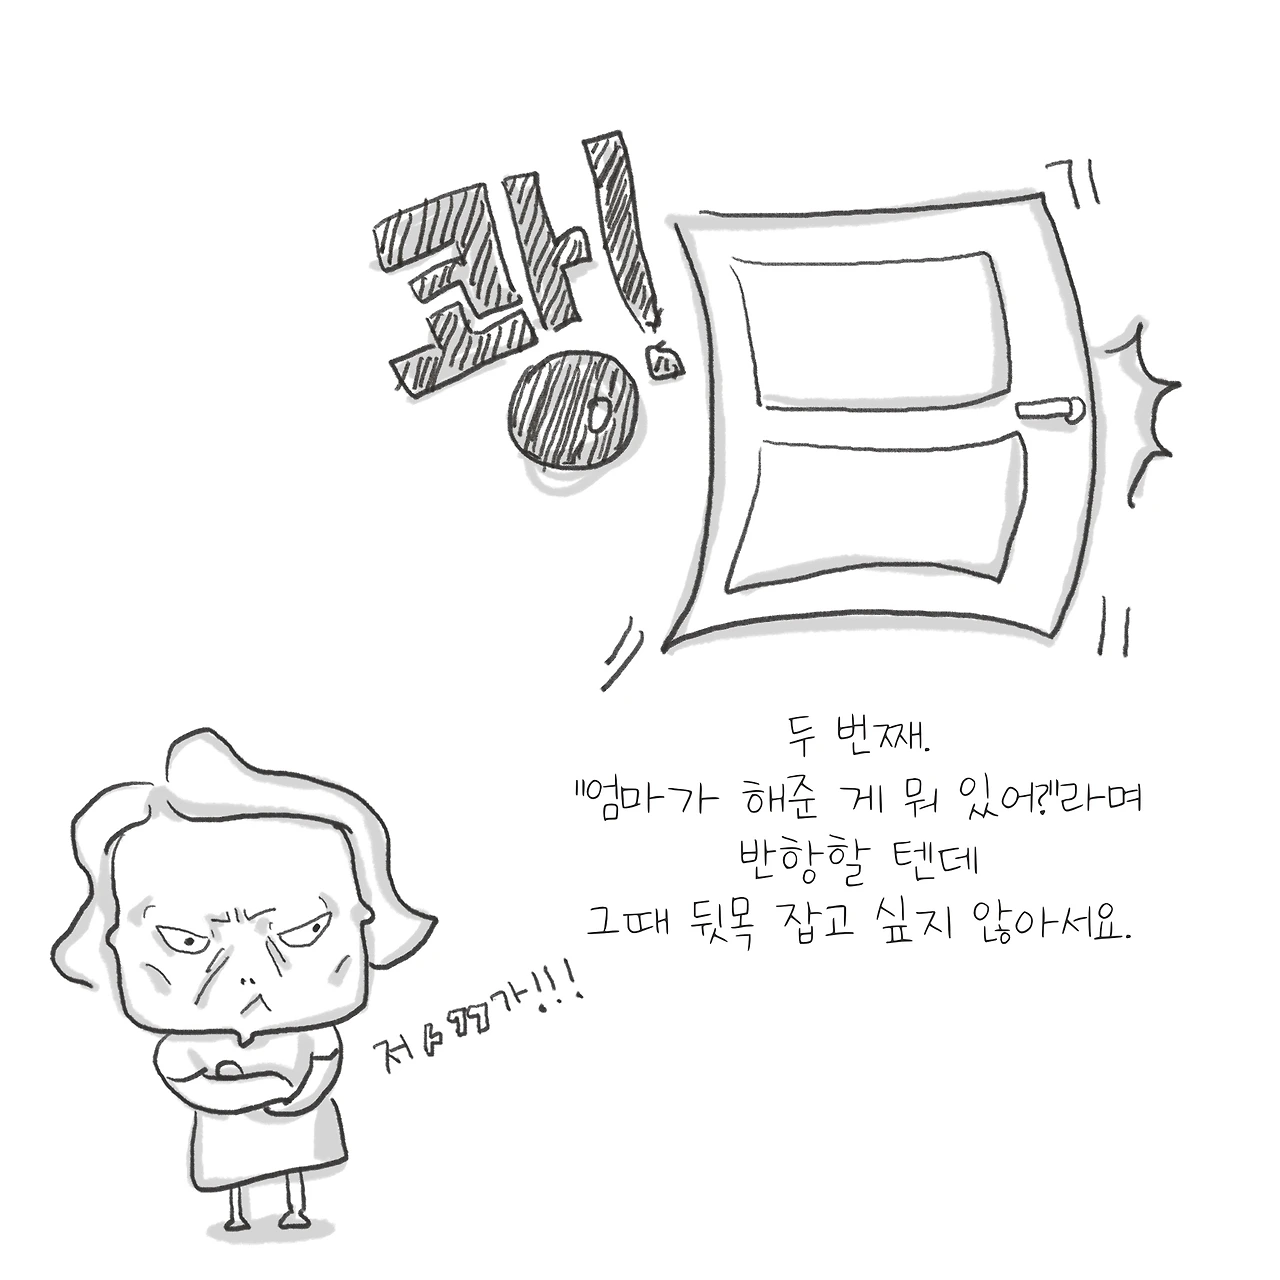 쾅!
두 번째.
"엄마가 해준 게 뭐 있어?"라며
반항할 텐데
그때 뒷목 잡고 싶지 않아서요.
저ㅅㄲ가!!!